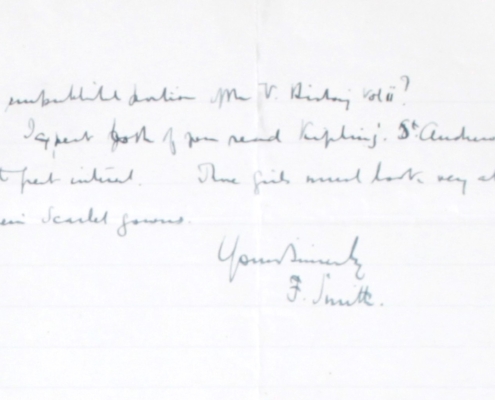 unpublished portion of the V. History Vol II?
I expect both of you read Kipling's St Andrews
great interest. Those girls must look very
Scarlet gowns.
Yours sincerely
F. Smith.